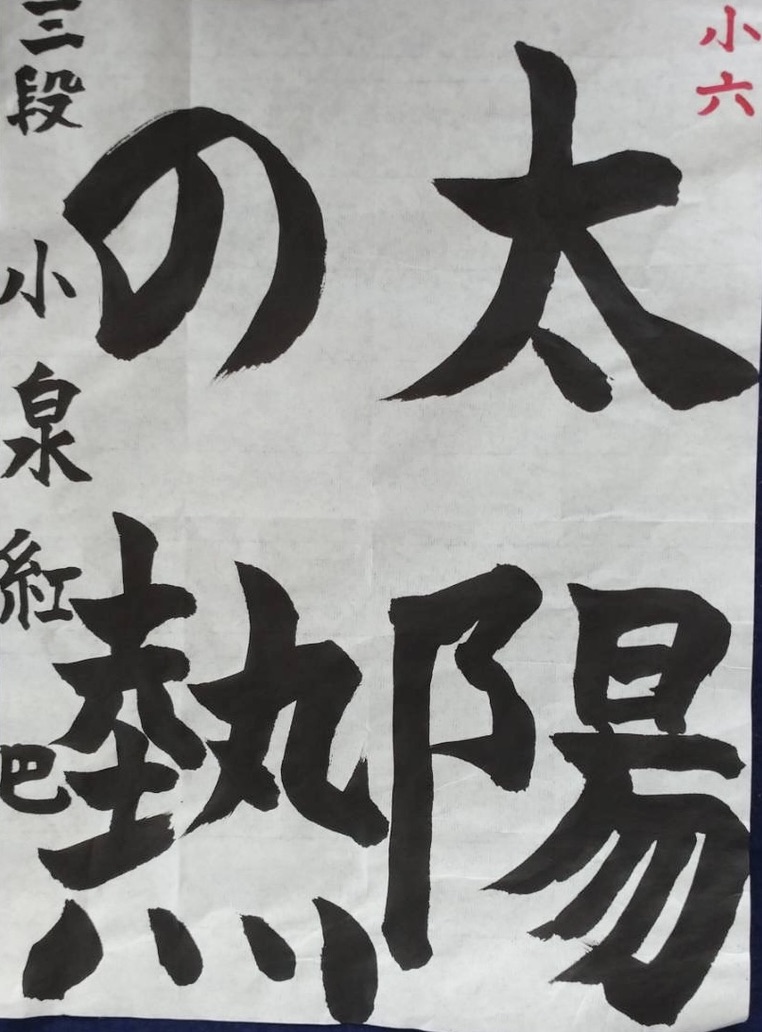 小六
太陽
の熱
三段 小泉紅巴